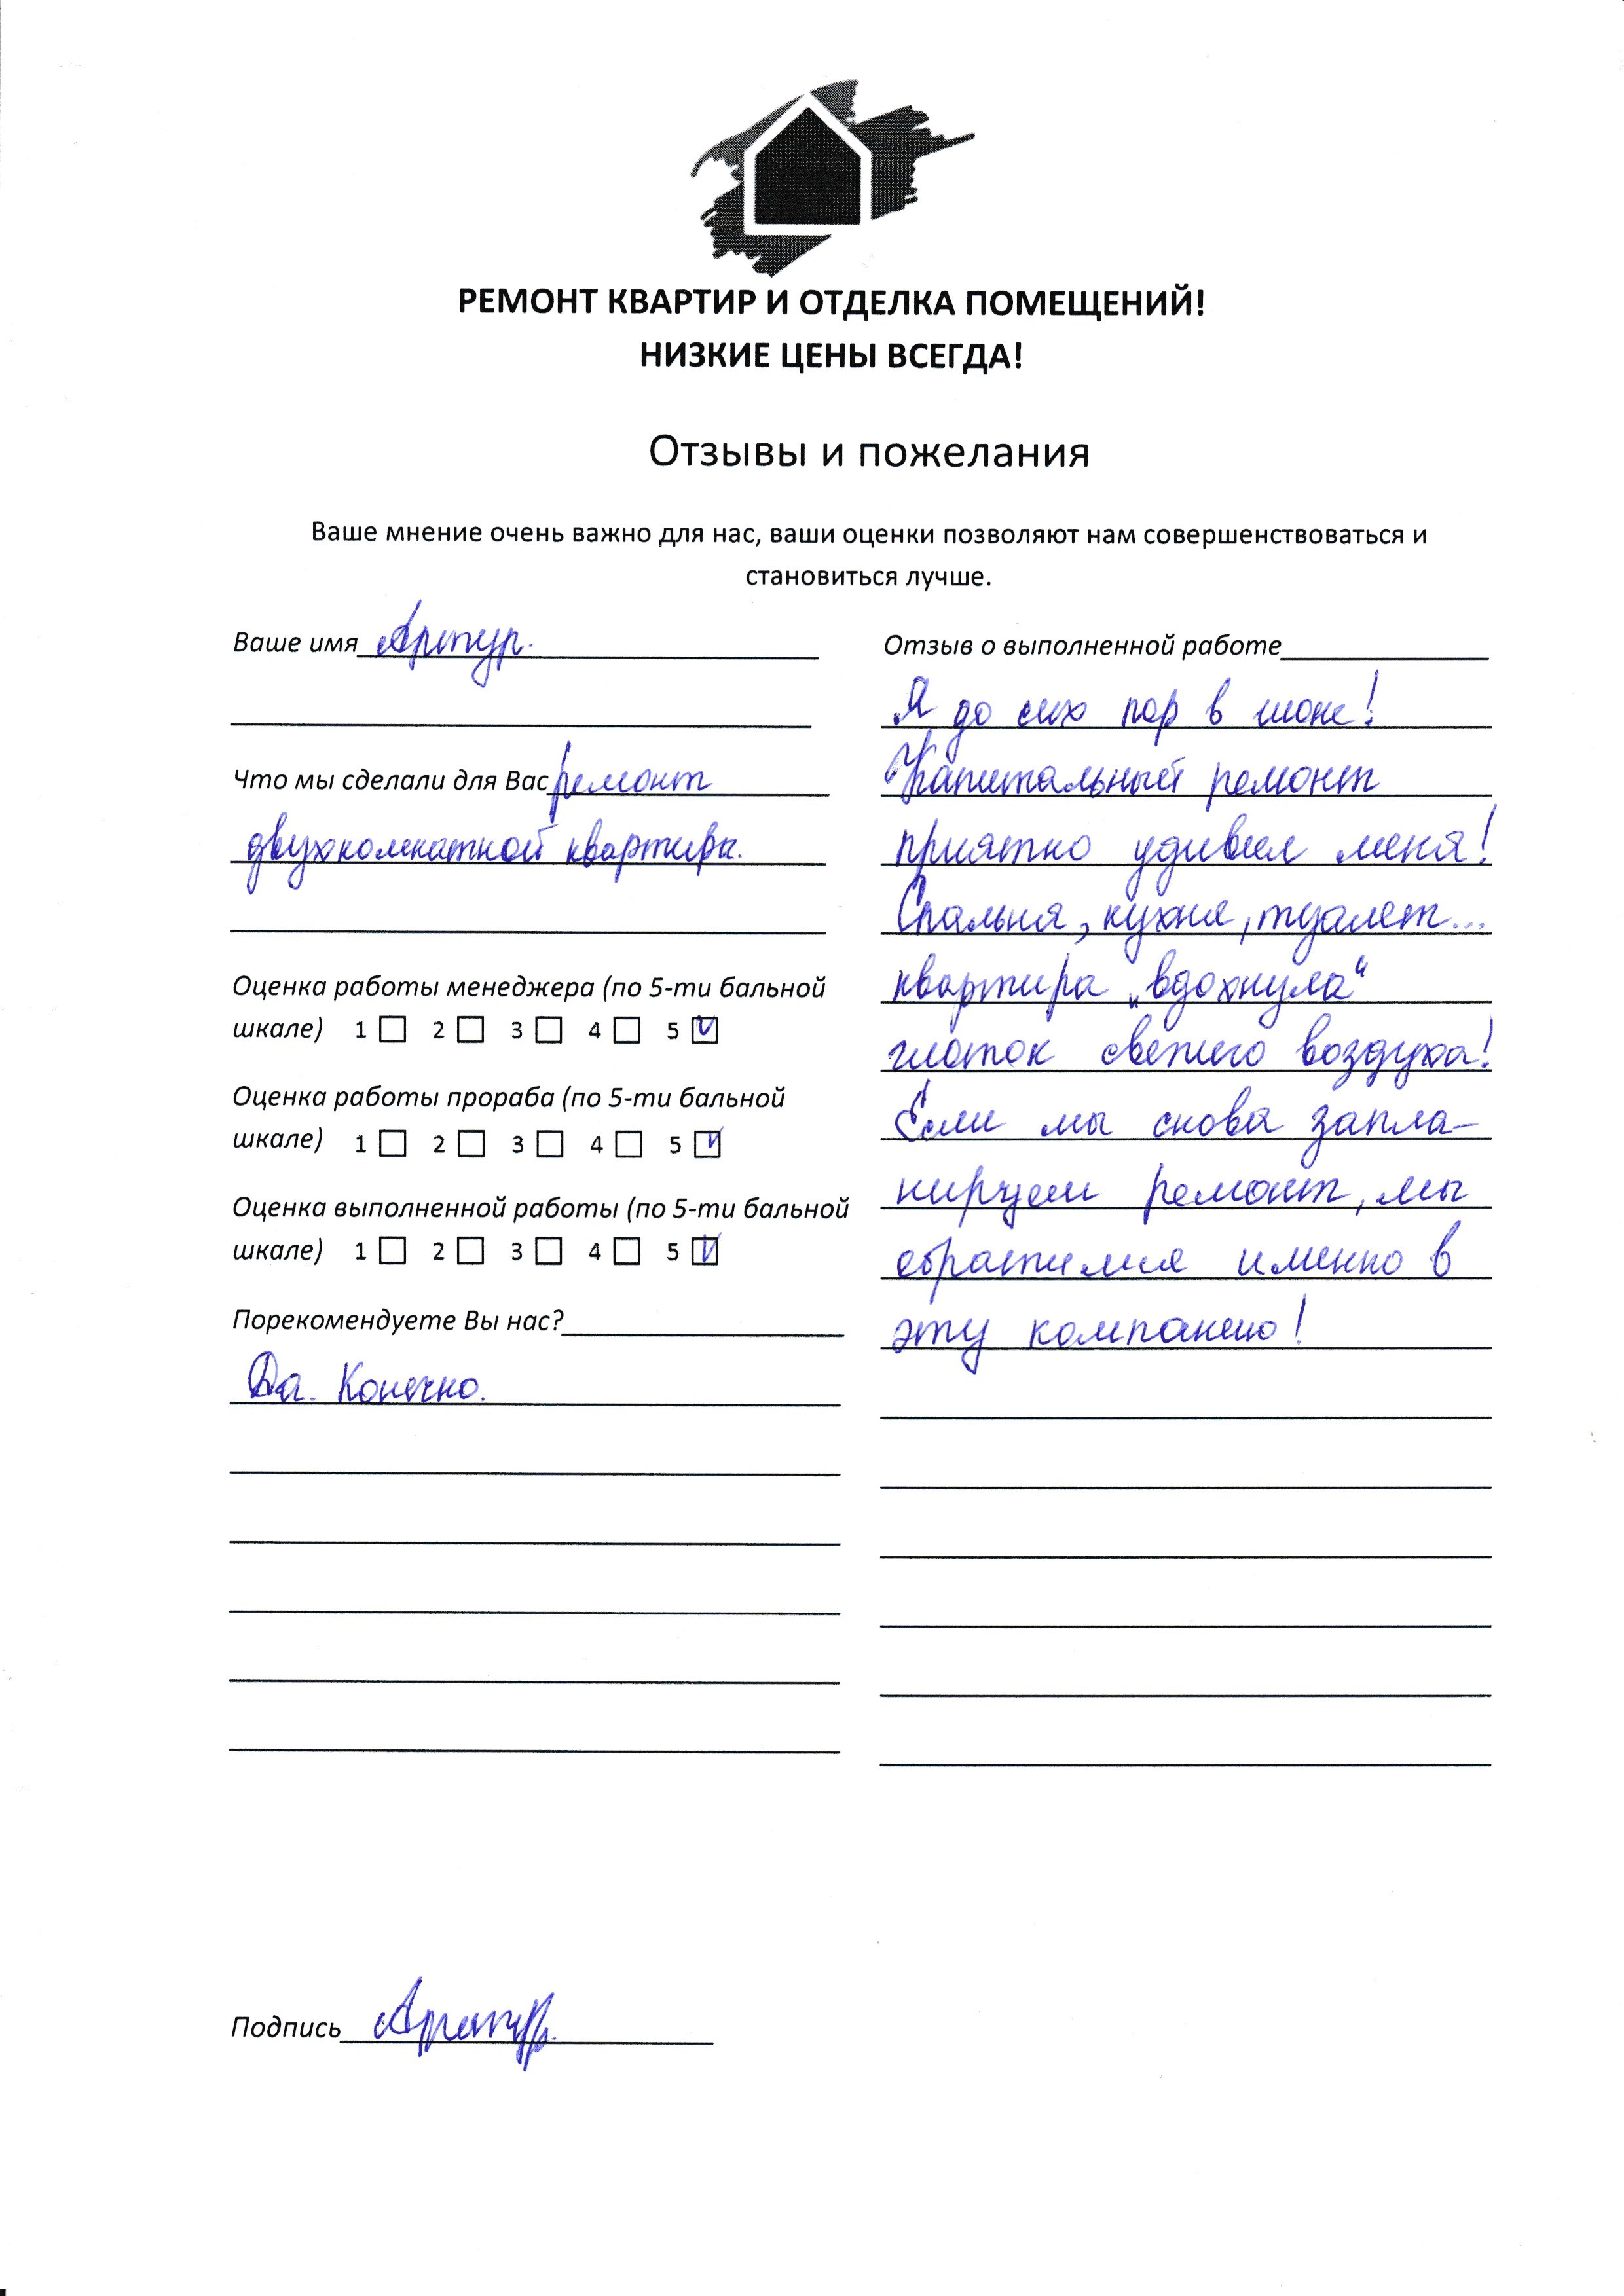 РЕМОНТ КВАРТИР И ОТДЕЛКА ПОМЕЩЕНИЙ!
НИЗКИЕ ЦЕНЫ ВСЕГДА!
Отзывы и пожелания
Ваше мнение очень важно для нас, ваши оценки позволяют нам совершенствоваться и
становиться лучше.
Ваше имя Артур.
Что мы сделали для Вас ремонт
двухкомнатной квартиры.
Оценка работы менеджера (по 5-ти бальной
шкале) 1 ☐ 2 ☐ 3 ☐ 4 ☐ 5 ☑
Оценка работы прораба (по 5-ти бальной
шкале) 1 ☐ 2 ☐ 3 ☐ 4 ☐ 5 ☑
Оценка выполненной работы (по 5-ти бальной
шкале) 1 ☐ 2 ☐ 3 ☐ 4 ☐ 5 ☑
Порекомендуете Вы нас?
Да. Конечно.
Отзыв о выполненной работе
Я до сих пор в шоке!
Капитальный ремонт
приятно удивил меня!
Спальня, кухня, туалет...
квартира „вдохнула“
глоток свежего воздуха!
Если мы снова запла-
нируем ремонт, мы
обратимся именно в
эту компанию!
Подпись Артур.